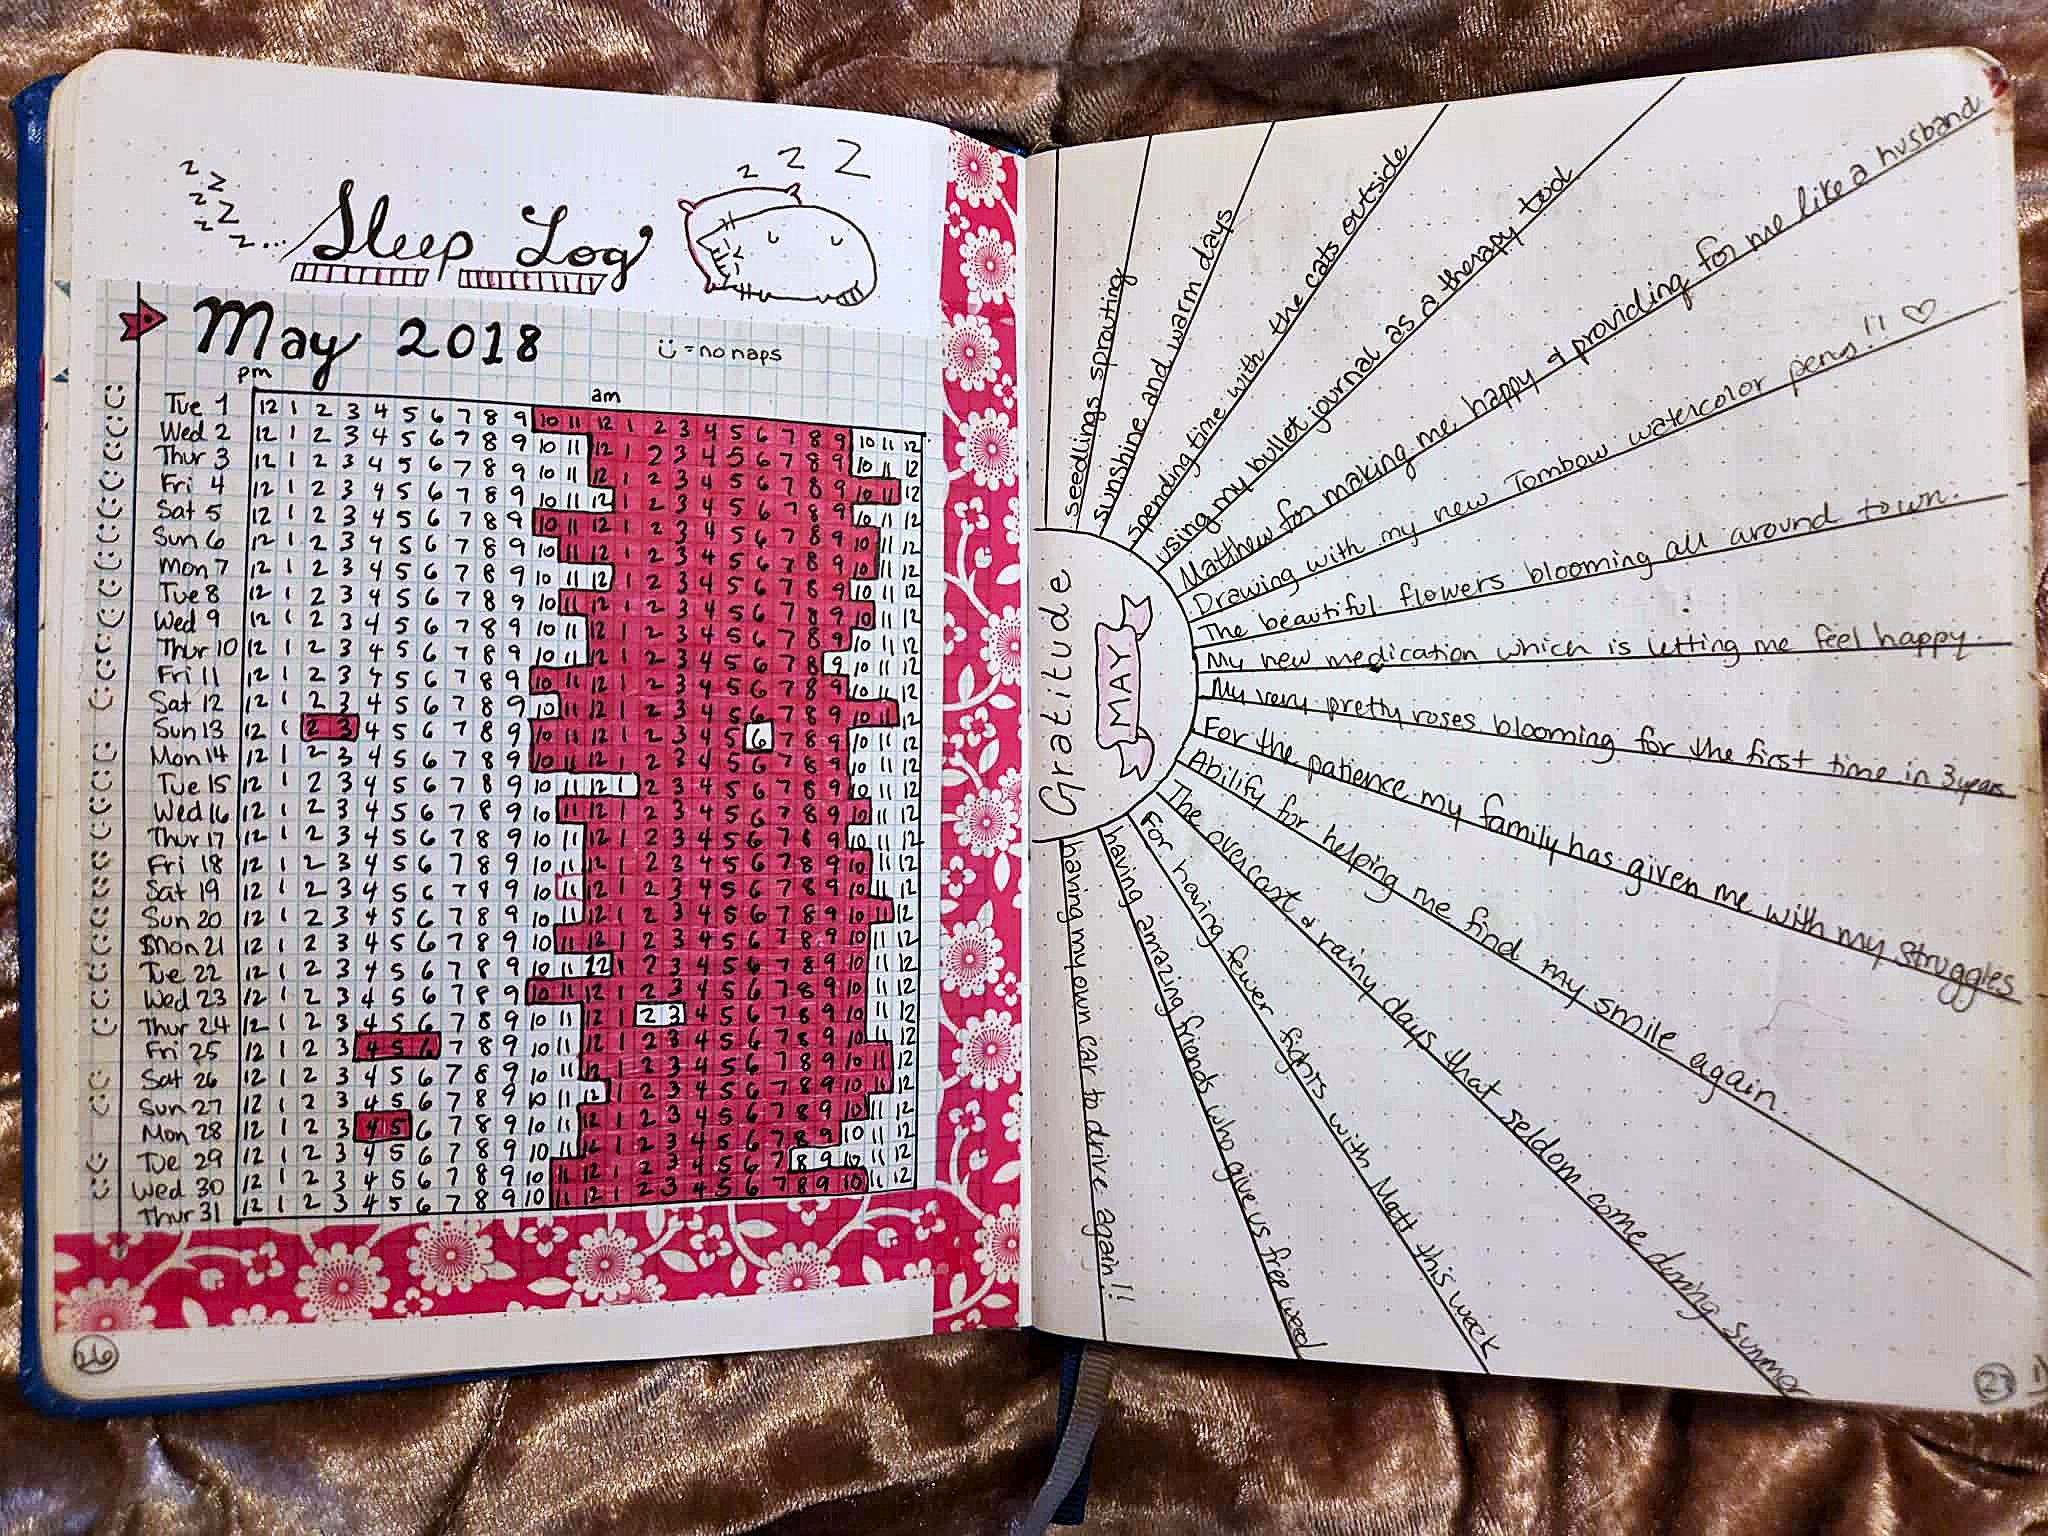 z z z z z z...
z z Z
Sleep Log
May 2018
= no naps
pm
am
Tue 1 12 1 2 3 4 5 6 7 8 9 10 11 12 1 2 3 4 5 6 7 8 9 10 11 12
Wed 2 12 1 2 3 4 5 6 7 8 9 10 11 12 1 2 3 4 5 6 7 8 9 10 11 12
Thur 3 12 1 2 3 4 5 6 7 8 9 10 11 12 1 2 3 4 5 6 7 8 9 10 11 12
Fri 4 12 1 2 3 4 5 6 7 8 9 10 11 12 1 2 3 4 5 6 7 8 9 10 11 12
Sat 5 12 1 2 3 4 5 6 7 8 9 10 11 12 1 2 3 4 5 6 7 8 9 10 11 12
Sun 6 12 1 2 3 4 5 6 7 8 9 10 11 12 1 2 3 4 5 6 7 8 9 10 11 12
Mon 7 12 1 2 3 4 5 6 7 8 9 10 11 12 1 2 3 4 5 6 7 8 9 10 11 12
Tue 8 12 1 2 3 4 5 6 7 8 9 10 11 12 1 2 3 4 5 6 7 8 9 10 11 12
Wed 9 12 1 2 3 4 5 6 7 8 9 10 11 12 1 2 3 4 5 6 7 8 9 10 11 12
Thur 10 12 1 2 3 4 5 6 7 8 9 10 11 12 1 2 3 4 5 6 7 8 9 10 11 12
Fri 11 12 1 2 3 4 5 6 7 8 9 10 11 12 1 2 3 4 5 6 7 8 9 10 11 12
Sat 12 12 1 2 3 4 5 6 7 8 9 10 11 12 1 2 3 4 5 6 7 8 9 10 11 12
Sun 13 12 1 2 3 4 5 6 7 8 9 10 11 12 1 2 3 4 5 6 7 8 9 10 11 12
Mon 14 12 1 2 3 4 5 6 7 8 9 10 11 12 1 2 3 4 5 6 7 8 9 10 11 12
Tue 15 12 1 2 3 4 5 6 7 8 9 10 11 12 1 2 3 4 5 6 7 8 9 10 11 12
Wed 16 12 1 2 3 4 5 6 7 8 9 10 11 12 1 2 3 4 5 6 7 8 9 10 11 12
Thur 17 12 1 2 3 4 5 6 7 8 9 10 11 12 1 2 3 4 5 6 7 8 9 10 11 12
Fri 18 12 1 2 3 4 5 6 7 8 9 10 11 12 1 2 3 4 5 6 7 8 9 10 11 12
Sat 19 12 1 2 3 4 5 6 7 8 9 10 11 12 1 2 3 4 5 6 7 8 9 10 11 12
Sun 20 12 1 2 3 4 5 6 7 8 9 10 11 12 1 2 3 4 5 6 7 8 9 10 11 12
Mon 21 12 1 2 3 4 5 6 7 8 9 10 11 12 1 2 3 4 5 6 7 8 9 10 11 12
Tue 22 12 1 2 3 4 5 6 7 8 9 10 11 12 1 2 3 4 5 6 7 8 9 10 11 12
Wed 23 12 1 2 3 4 5 6 7 8 9 10 11 12 1 2 3 4 5 6 7 8 9 10 11 12
Thur 24 12 1 2 3 4 5 6 7 8 9 10 11 12 1 2 3 4 5 6 7 8 9 10 11 12
Fri 25 12 1 2 3 4 5 6 7 8 9 10 11 12 1 2 3 4 5 6 7 8 9 10 11 12
Sat 26 12 1 2 3 4 5 6 7 8 9 10 11 12 1 2 3 4 5 6 7 8 9 10 11 12
Sun 27 12 1 2 3 4 5 6 7 8 9 10 11 12 1 2 3 4 5 6 7 8 9 10 11 12
Mon 28 12 1 2 3 4 5 6 7 8 9 10 11 12 1 2 3 4 5 6 7 8 9 10 11 12
Tue 29 12 1 2 3 4 5 6 7 8 9 10 11 12 1 2 3 4 5 6 7 8 9 10 11 12
Wed 30 12 1 2 3 4 5 6 7 8 9 10 11 12 1 2 3 4 5 6 7 8 9 10 11 12
Thur 31 12 1 2 3 4 5 6 7 8 9 10 11 12 1 2 3 4 5 6 7 8 9 10 11 12
26
Gratitude
MAY
seedlings sprouting
sunshine and warm days
spending time with the cats outside
using my bullet journal as a therapy tool
Matthew for making me happy & providing for me like a husband
Drawing with my new Tombow watercolor pens!! ♡
The beautiful flowers blooming all around town.
My new medication which is letting me feel happy.
My very pretty roses blooming for the first time in 3 years
For the patience my family has given me with my struggles
Abilify for helping me find my smile again.
The overcast & rainy days that seldom come during summer
For having fewer fights with Matt this week
having amazing friends who give us free weed
having my own car to drive again!!
27